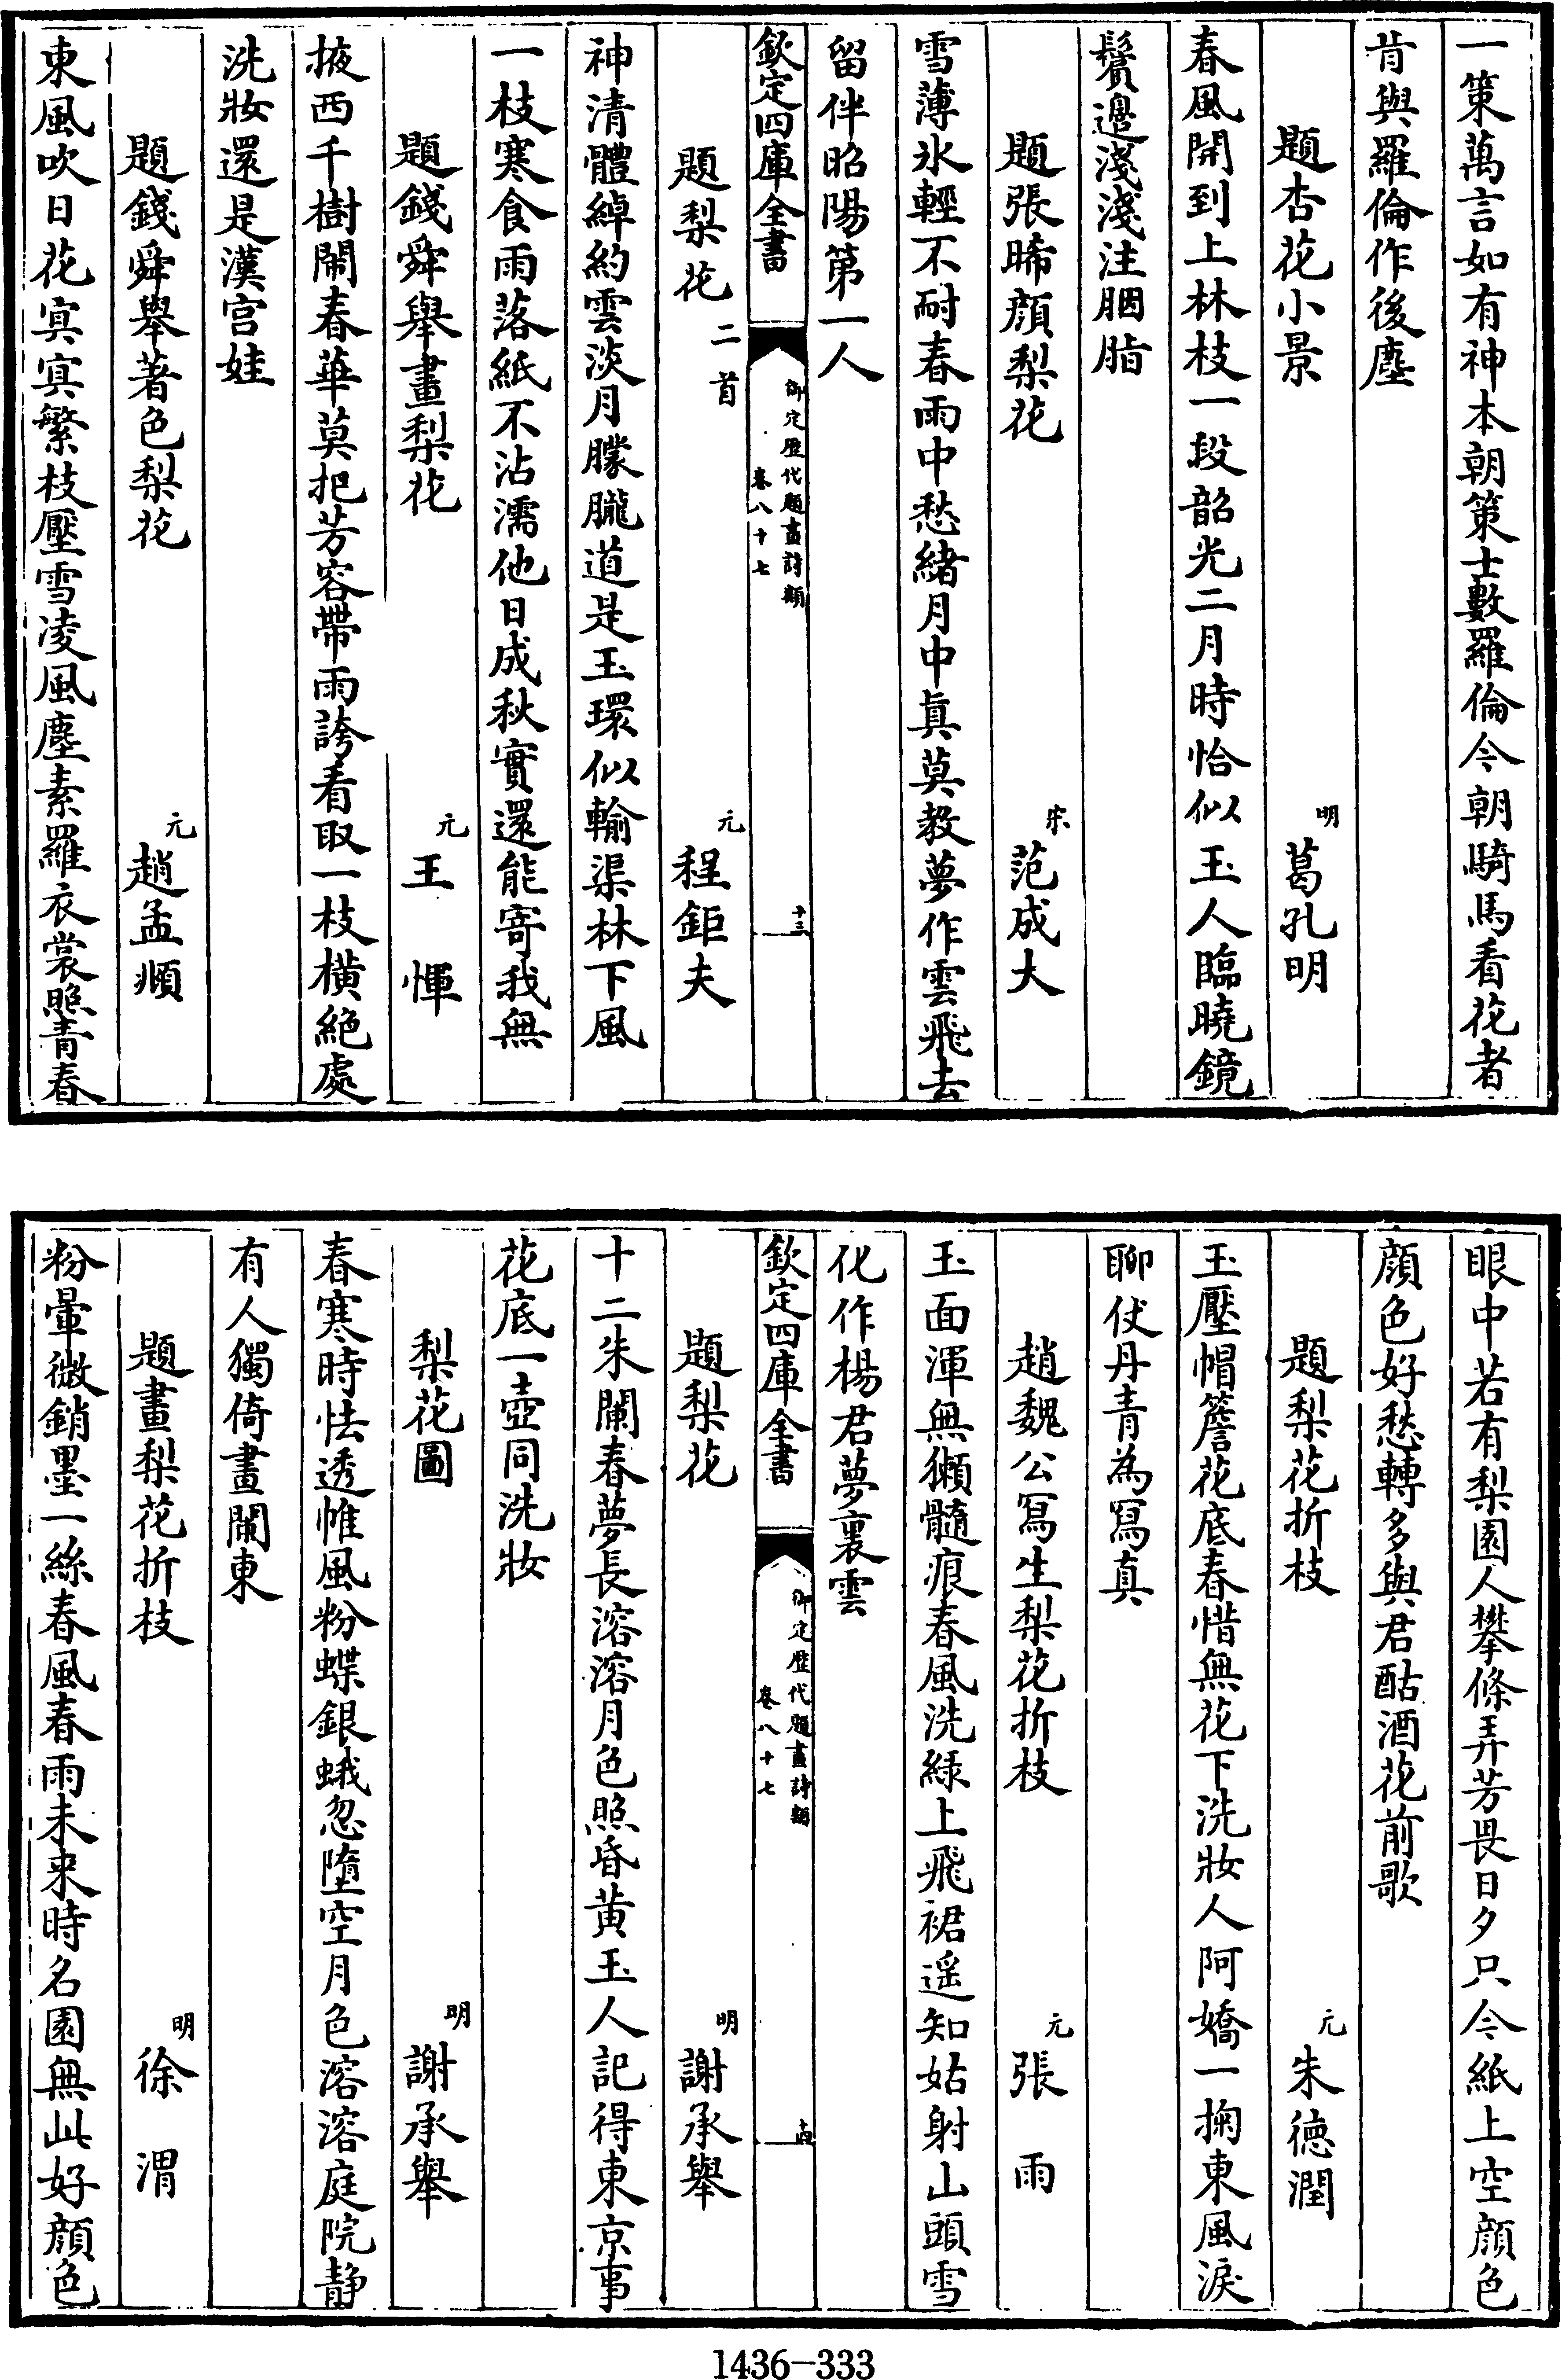 一策萬言如有神本朝策士數羅倫今朝騎馬看花者
肯與羅倫作後塵
題杏花小景
明
葛孔明
春風開到上林枝一段韶光二月時恰似玉人臨曉鏡
鬢邊淺淺注胭脂
題張晞顔梨花
宋
范成大
雪薄氷輕不耐春雨中愁緒月中真莫教夢作雲飛去
留伴昭陽第一人
欽定四庫全書
御定歴代題畫詩類
卷八十七
十三
題梨花
二首
元
程鉅夫
神清體綽約雲淡月朦朧道是玉環似輸渠林下風
一枝寒食雨落紙不沾濡他日成秋實還能寄我無
題錢舜舉畫梨花
元
王惲
掖西千樹鬧春華莫把芳容帶雨誇看取一枝橫絶處
洗妝還是漢宫娃
題錢舜舉著色梨花
元
趙孟頫
東風吹日花冥冥繁枝壓雪凌風塵素羅衣裳照青春
眼中若有梨園人攀條弄芳畏日夕只今紙上空顔色
顔色好愁轉多與君酤酒花前歌
題梨花折枝
元
朱德潤
玉壓帽簷花底春惜無花下洗妝人阿嬌一掬東風淚
聊仗丹青為冩真
趙魏公冩生梨花折枝
元
張雨
玉面渾無獺髓痕春風洗緑上飛裙遥知姑射山頭雪
化作楊君夢裏雲
欽定四庫全書
御定歴代題畫詩類
卷八十七
十四
題梨花
明
謝承舉
十二朱闌春夢長溶溶月色照昏黄玉人記得東京事
花底一壺同洗妝
梨花圖
明
謝承舉
春寒時怯透帷風粉蝶銀蛾忽墮空月色溶溶庭院静
有人獨倚畫闌東
題畫梨花折枝
明
徐渭
粉暈微銷墨一絲春風春雨未来時名園無此好顔色
1436-333